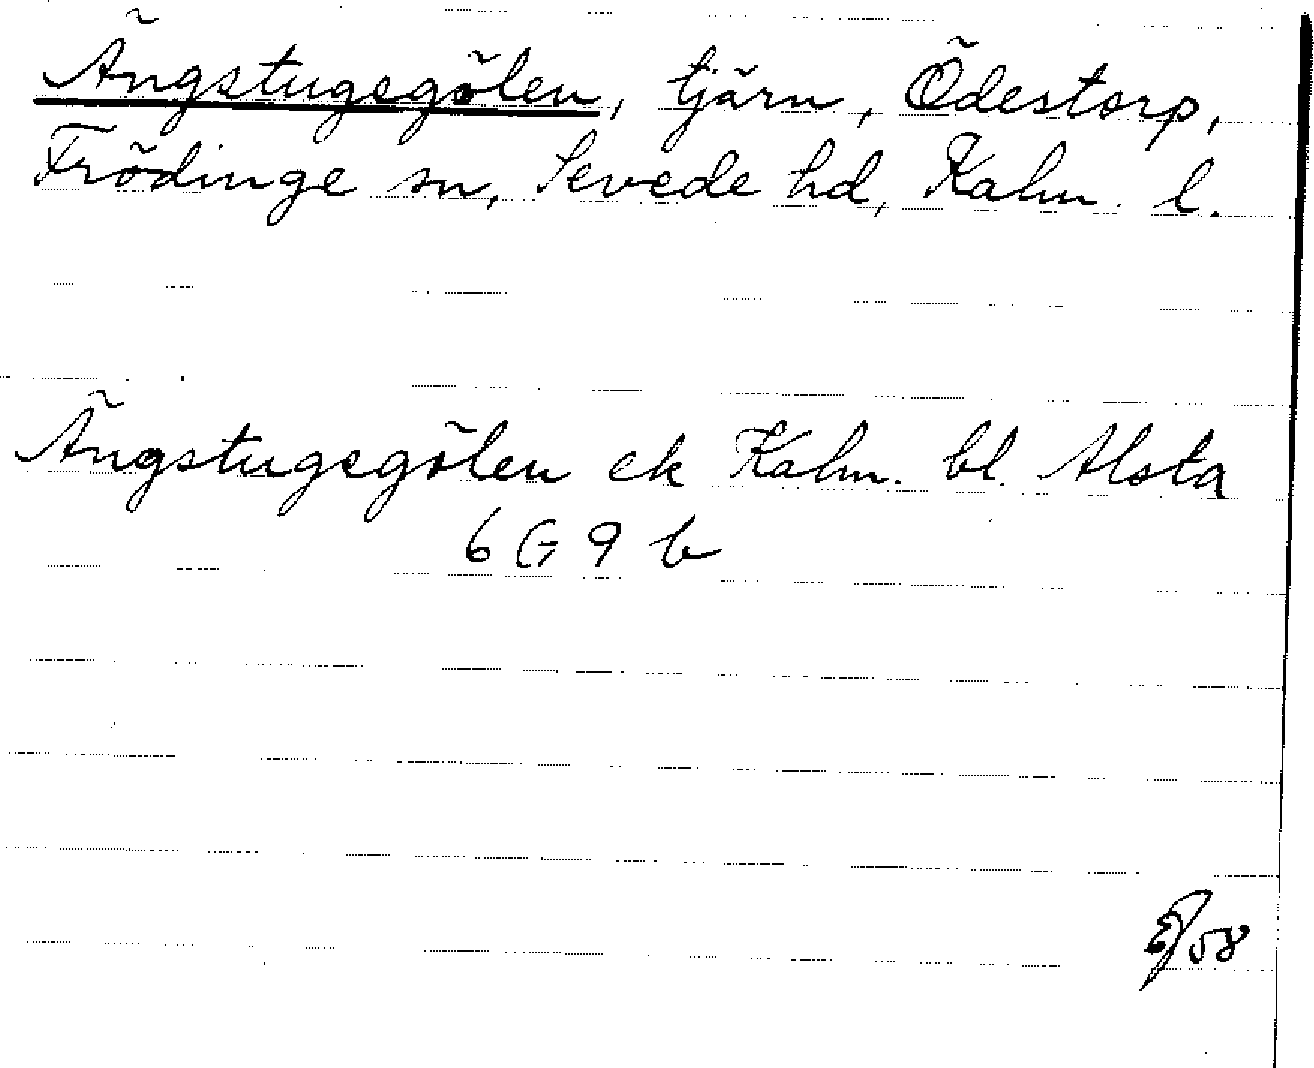 Ängstugegölen, tjärn, Ödestorp,
Frödinge sn, Sevede hd, Kalm. l.
Ängstugegölen ek Kalm. bl. Alsta
6 G 9 b
/58